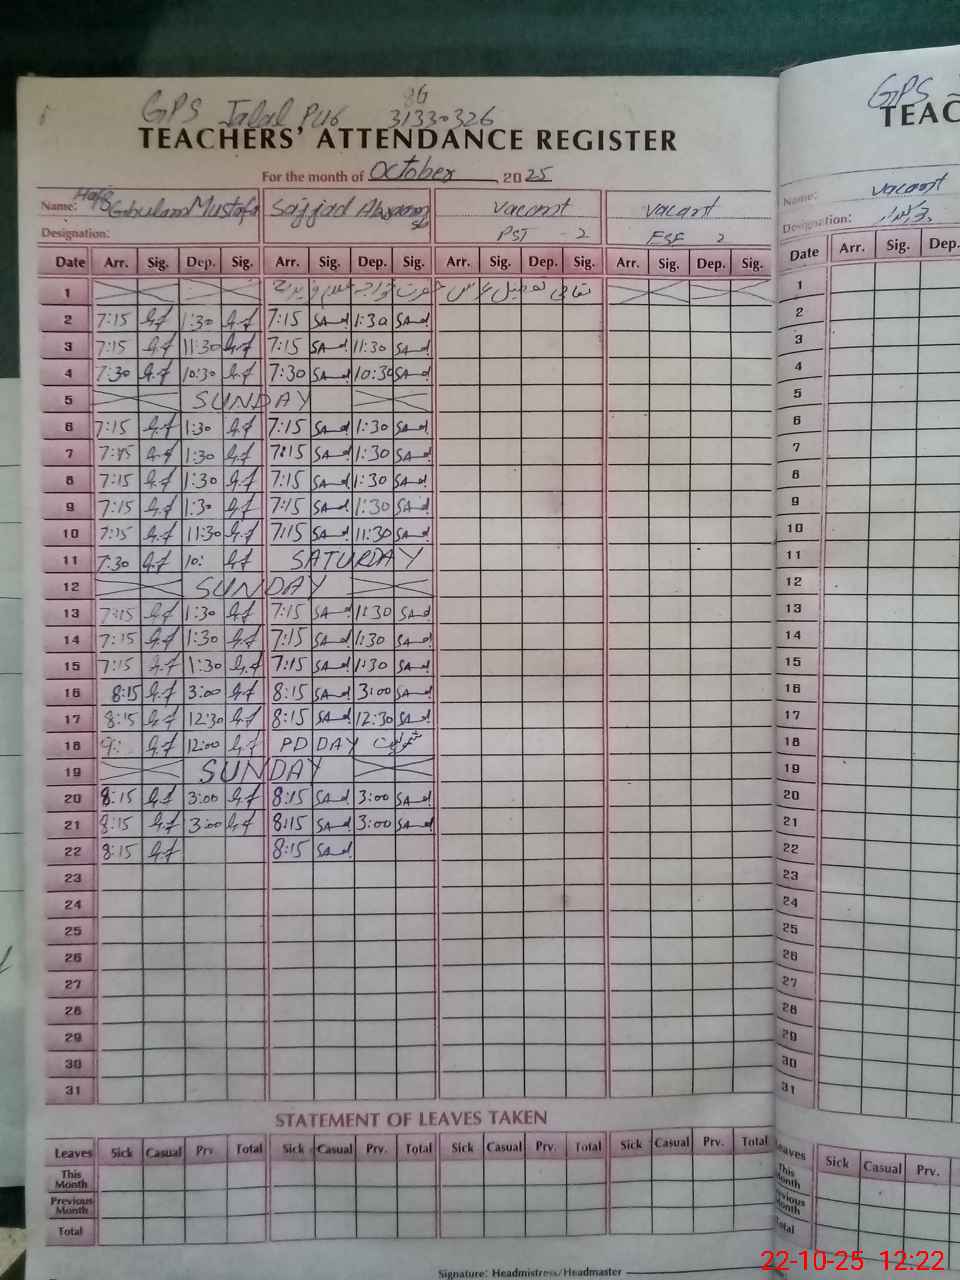 86
GPS Jalal PUR 31330326
TEACHERS' ATTENDANCE REGISTER
For the month of October, 2025
Name: Hafiz Ghulam Mustafa Sajjad Ahmad vacant vacant
Designation: PST - 2 ESE 2
Date Arr. Sig. Dep. Sig. Arr. Sig. Dep. Sig. Arr. Sig. Dep. Sig. Arr. Sig. Dep. Sig.
1 مقامی تعطیل عرس حضرت خواجہ
2 7:15 G.f 1:30 G.f 7:15 SAd 1:30 SAd
3 7:15 G.f 11:30 G.f 7:15 SAd 11:30 SAd
4 7:30 G.f 10:30 G.f 7:30 SAd 10:30 SAd
5 SUNDAY
6 7:15 G.f 1:30 G.f 7:15 SAd 1:30 SAd
7 7:15 G.f 1:30 G.f 7:15 SAd 1:30 SAd
8 7:15 G.f 1:30 G.f 7:15 SAd 1:30 SAd
9 7:15 G.f 1:30 G.f 7:15 SAd 1:30 SAd
10 7:15 G.f 11:30 G.f 7:15 SAd 11:30 SAd
11 7:30 G.f 10: G.f SATURDAY
12 SUNDAY
13 7:15 G.f 1:30 G.f 7:15 SAd 1:30 SAd
14 7:15 G.f 1:30 G.f 7:15 SAd 1:30 SAd
15 7:15 G.f 1:30 G.f 7:15 SAd 1:30 SAd
16 8:15 G.f 3:00 G.f 8:15 SAd 3:00 SAd
17 8:15 G.f 12:30 G.f 8:15 SAd 12:30 SAd
18 9: G.f 12:00 G.f PD DAY
19 SUNDAY
20 8:15 G.f 3:00 G.f 8:15 SAd 3:00 SAd
21 8:15 G.f 3:00 G.f 8:15 SAd 3:00 SAd
22 8:15 G.f 8:15 SAd
23
24
25
26
27
28
29
30
31
STATEMENT OF LEAVES TAKEN
Leaves Sick Casual Prv. Total Sick Casual Prv. Total Sick Casual Prv. Total Sick Casual Prv. Total
This Month
Previous Month
Total
Signature: Headmistress/Headmaster
GPS
TEAC
Name: vacant
Designation:
Date Arr. Sig. Dep.
1
2
3
4
5
6
7
8
9
10
11
12
13
14
15
16
17
18
19
20
21
22
23
24
25
26
27
28
29
30
31
eaves Sick Casual Prv.
This
onth
vious
onth
otal
22-10-25 12:22